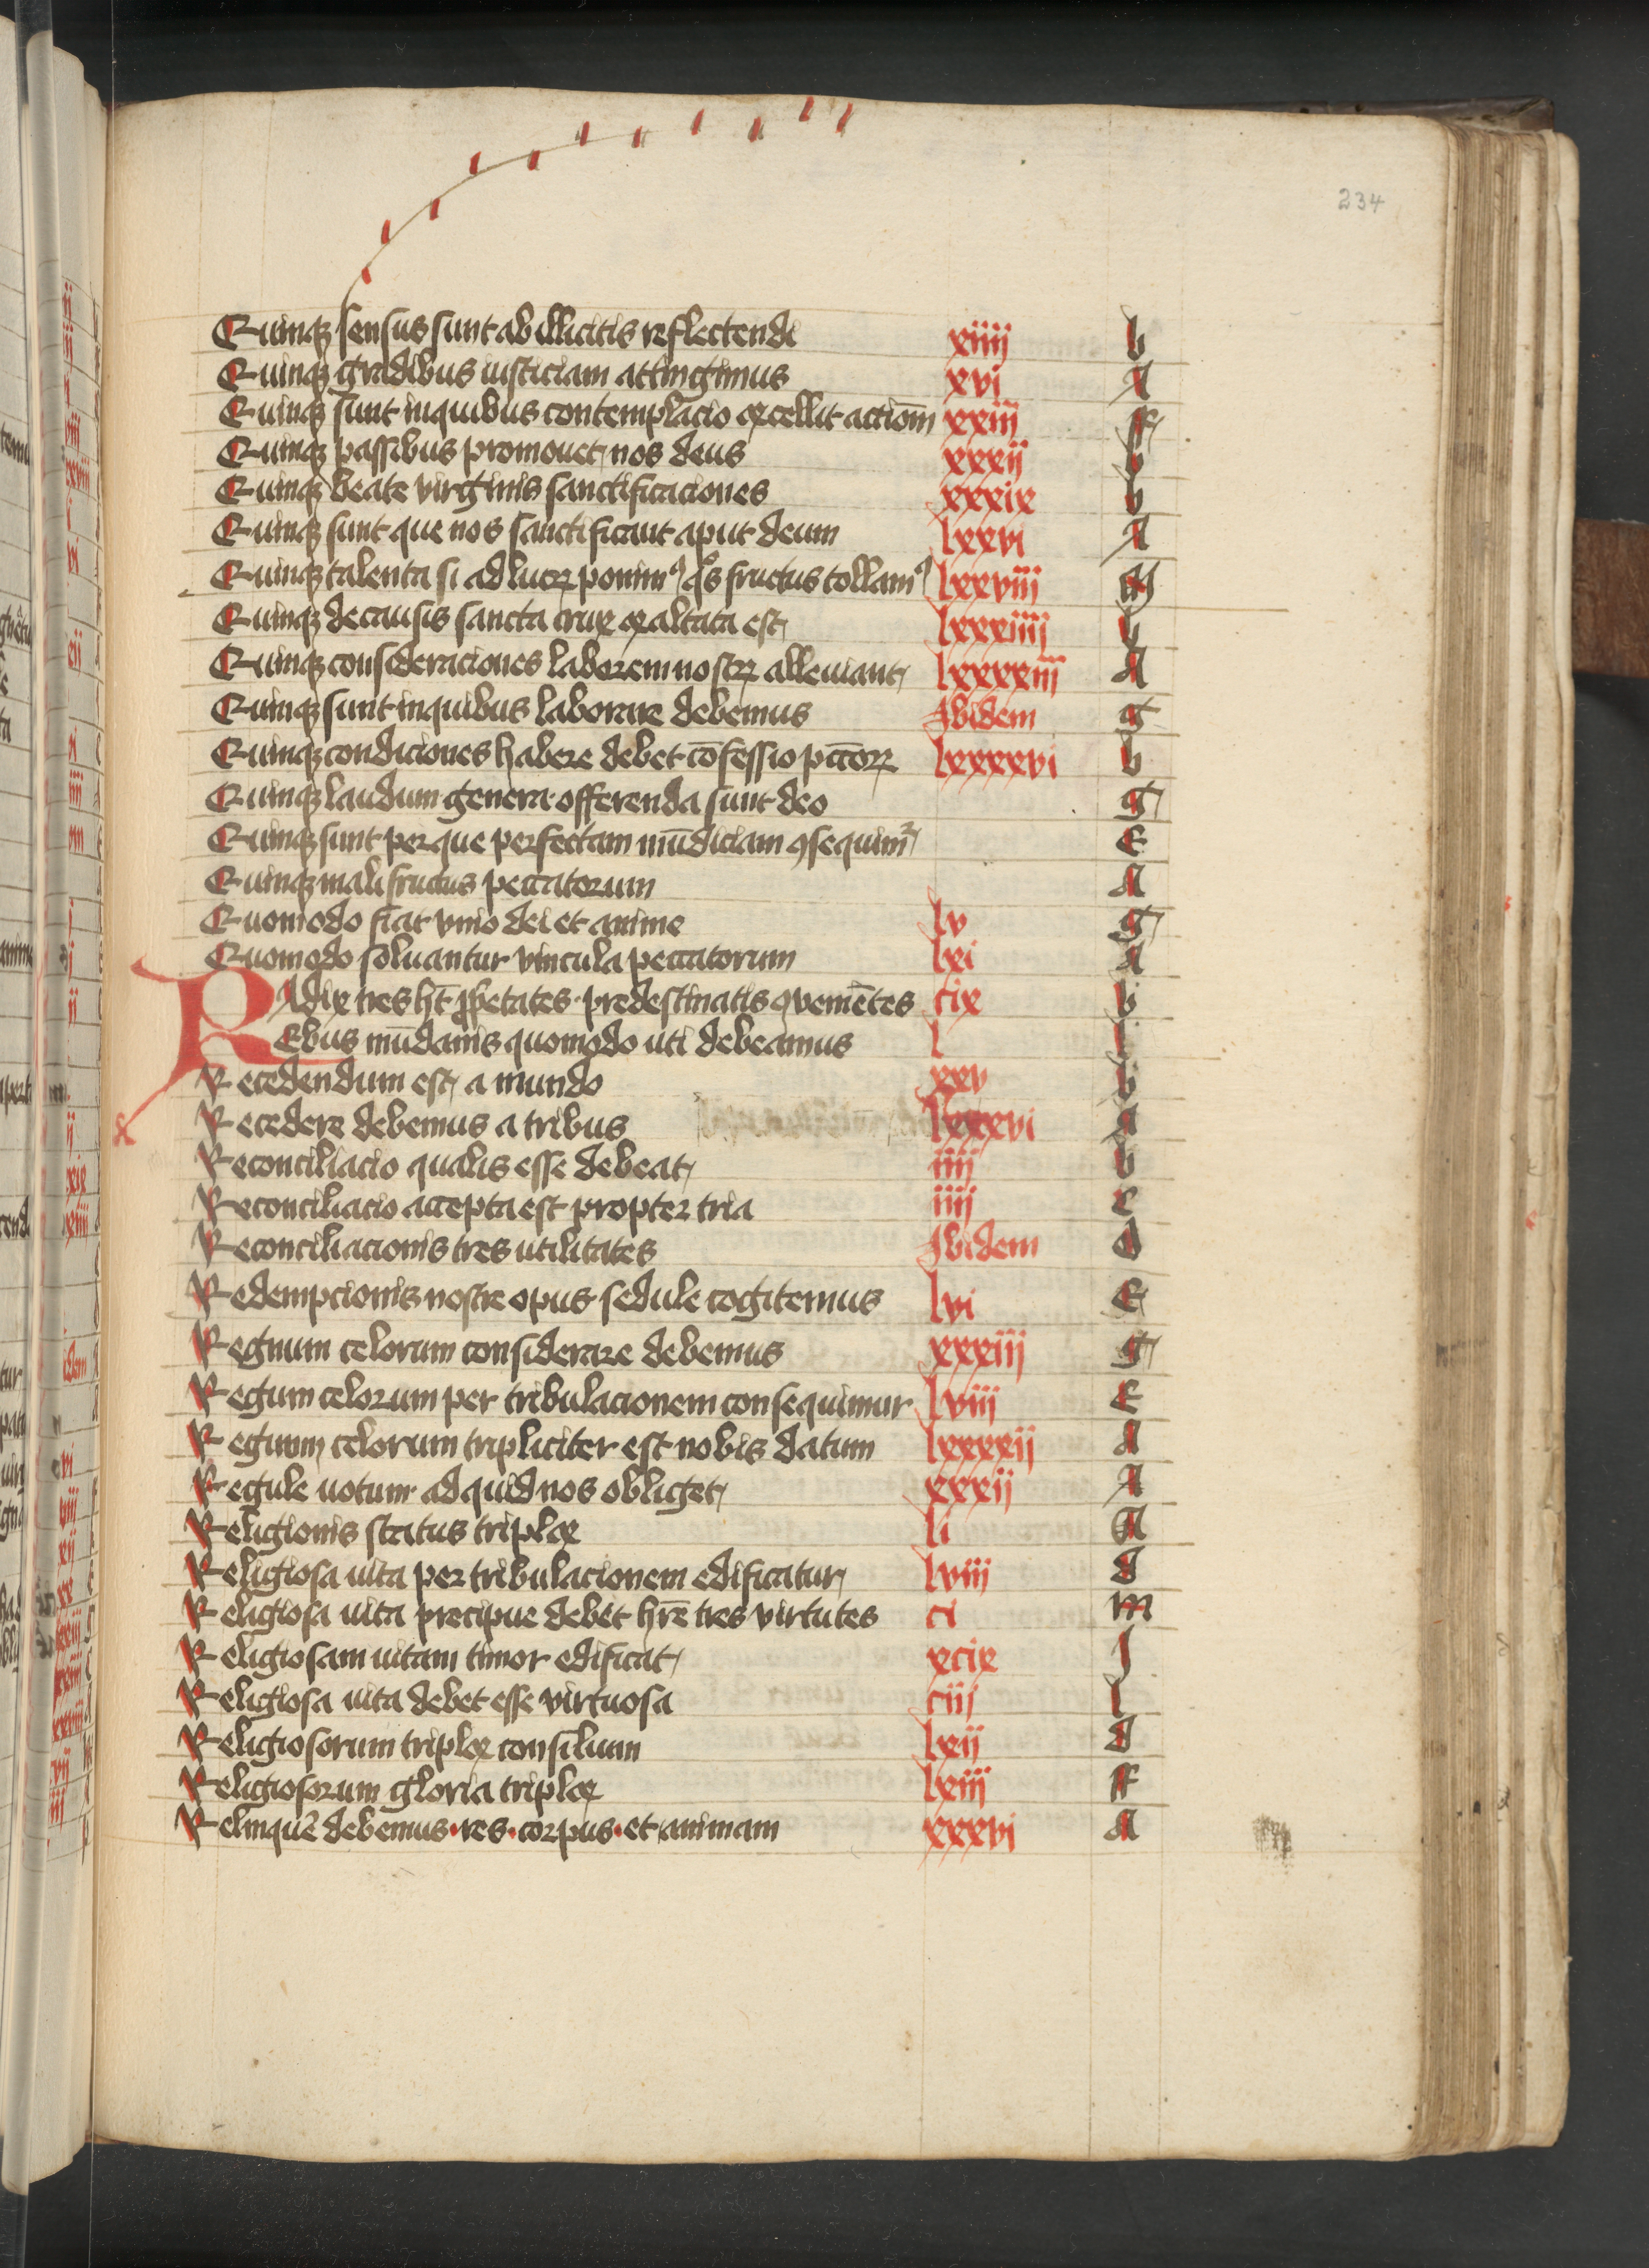 234
Quinqꝫ sensus sunt ab illicitis reflectendi xiiij b
Quinqꝫ gradibus iusticiam attingimus xvi A
Quinqꝫ sunt in quibus contemplacio excellit actiōm xxiij ff
Quinqꝫ passibus promouet nos deus xxxij b
Quinqꝫ beate virginis sanctificaciones xxxix b
Quinqꝫ sunt que nos sanctificant aput deum lxxvi A
Quinqꝫ talenta si ad lucrꝫ ponimꝰ qͦs fructus tollamꝰ lxxviij M
Quinqꝫ de causis sancta crux exaltata est lxxxiiij b
Quinqꝫ consideraciones laborem nostrꝫ alleuiant lxxxxiij A
Quinqꝫ sunt in quibus laborare debemus Ibidem g
Quinqꝫ condiciones habere debet cōfessio pctōrꝫ lxxxxvi b
Quinqꝫ laudum genera offerenda sunt deo g
Quinqꝫ sunt per que perfectam mūdiciam ꝯsequimͬ E
Quinqꝫ mali fructus peccatorum A
Quomodo fiat vnio dei et anime lv g
Quomodo soluantur vincula peccatorum lxi A
RAdix tres hn̄t ꝓpetates predestinatis ꝯueniētes cix b
REbus mūdanis quomodo uti debeamus l l
Recedendum est a mundo xxv b
Recedere debemus a tribus lxxxvi a
Reconciliacio qualis esse debeat iiij b
Reconciliacio accepta est propter tria iiij c
Reconciliacionis tres utilitates Ibidem d
Redempcionis nostre opus sedule cogitemus lvi E
Regnum celorum considerare debemus xxxiij g
Regum celorum per tribulacionem consequimur lviij E
Regnum celorum tripliciter est nobis datum lxxxxij A
Regule uotum ad quid nos obliget xxxij A
Religionis status triplex li A
Religiosa uita per tribulacionem edificatur lviij d
Religiosa uita precipue debet hr̄e tres virtutes ci m
Religiosam uitam timor edificat xcix J
Religiosa uita debet esse virtuosa ciij l
Religiosorum triplex consilium lxij d
Religiosorum gloria triplex lxiij ff
Relinquē debemus · res · corpus · et animam xxxvi A